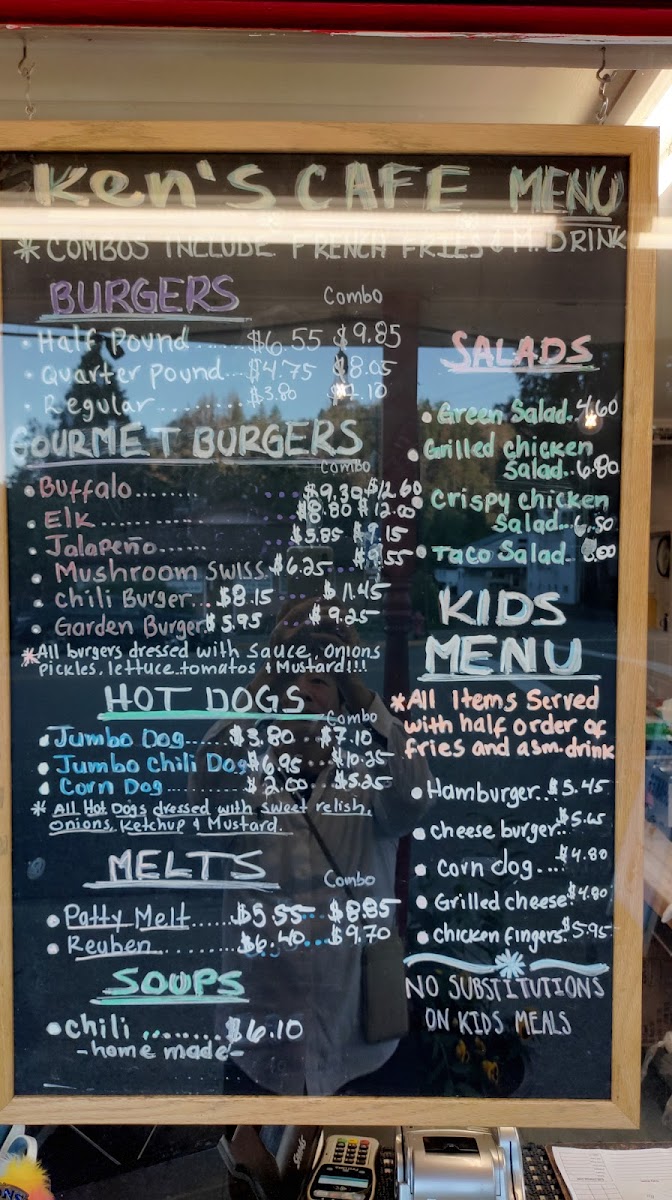 Ken's CAFE MENU
*COMBOS INCLUDE FRENCH FRIES & M. DRINK
BURGERS Combo
• Half Pound ...... $6.55 $9.85
• Quarter pound... $4.75 $8.05
• Regular ........ $3.80
GOURMET BURGERS
Combo
• Buffalo........ $9.30 $12.60
• Elk ............ $8.80 $12.00
• Jalapeño...... $5.85 $9.15
• Mushroom swiss $6.25 $9.55
• chili Burger... $8.15 $11.45
• Garden Burger $5.95 $9.25
*All burgers dressed with sauce, onions
pickles, lettuce tomatoes & Mustard!!!
HOT DOGS
Combo
• Jumbo Dog...... $3.80 $7.10
• Jumbo Chili Dog $6.95 $10.25
• Corn Dog........ $2.00 $5.25
* All Hot Dogs dressed with sweet relish,
onions, Ketchup & Mustard.
MELTS
Combo
• Patty Melt..... $5.55 $8.85
• Reuben ........ $6.40 $9.70
SOUPS
• chili ........ $6.10
-home made-
SALADS
• Green Salad. 4.60
• Grilled chicken
Salad.. 6.80
• Crispy chicken
Salad... 6.50
• Taco Salad
KIDS
MENU
*All Items Served
with half order of
fries and a sm. drink
• Hamburger.. $5.45
• cheese burger. $5.65
• corn dog.... $4.80
• Grilled cheese $4.80
• chicken fingers $5.95
NO SUBSTITUTIONS
ON KIDS MEALS